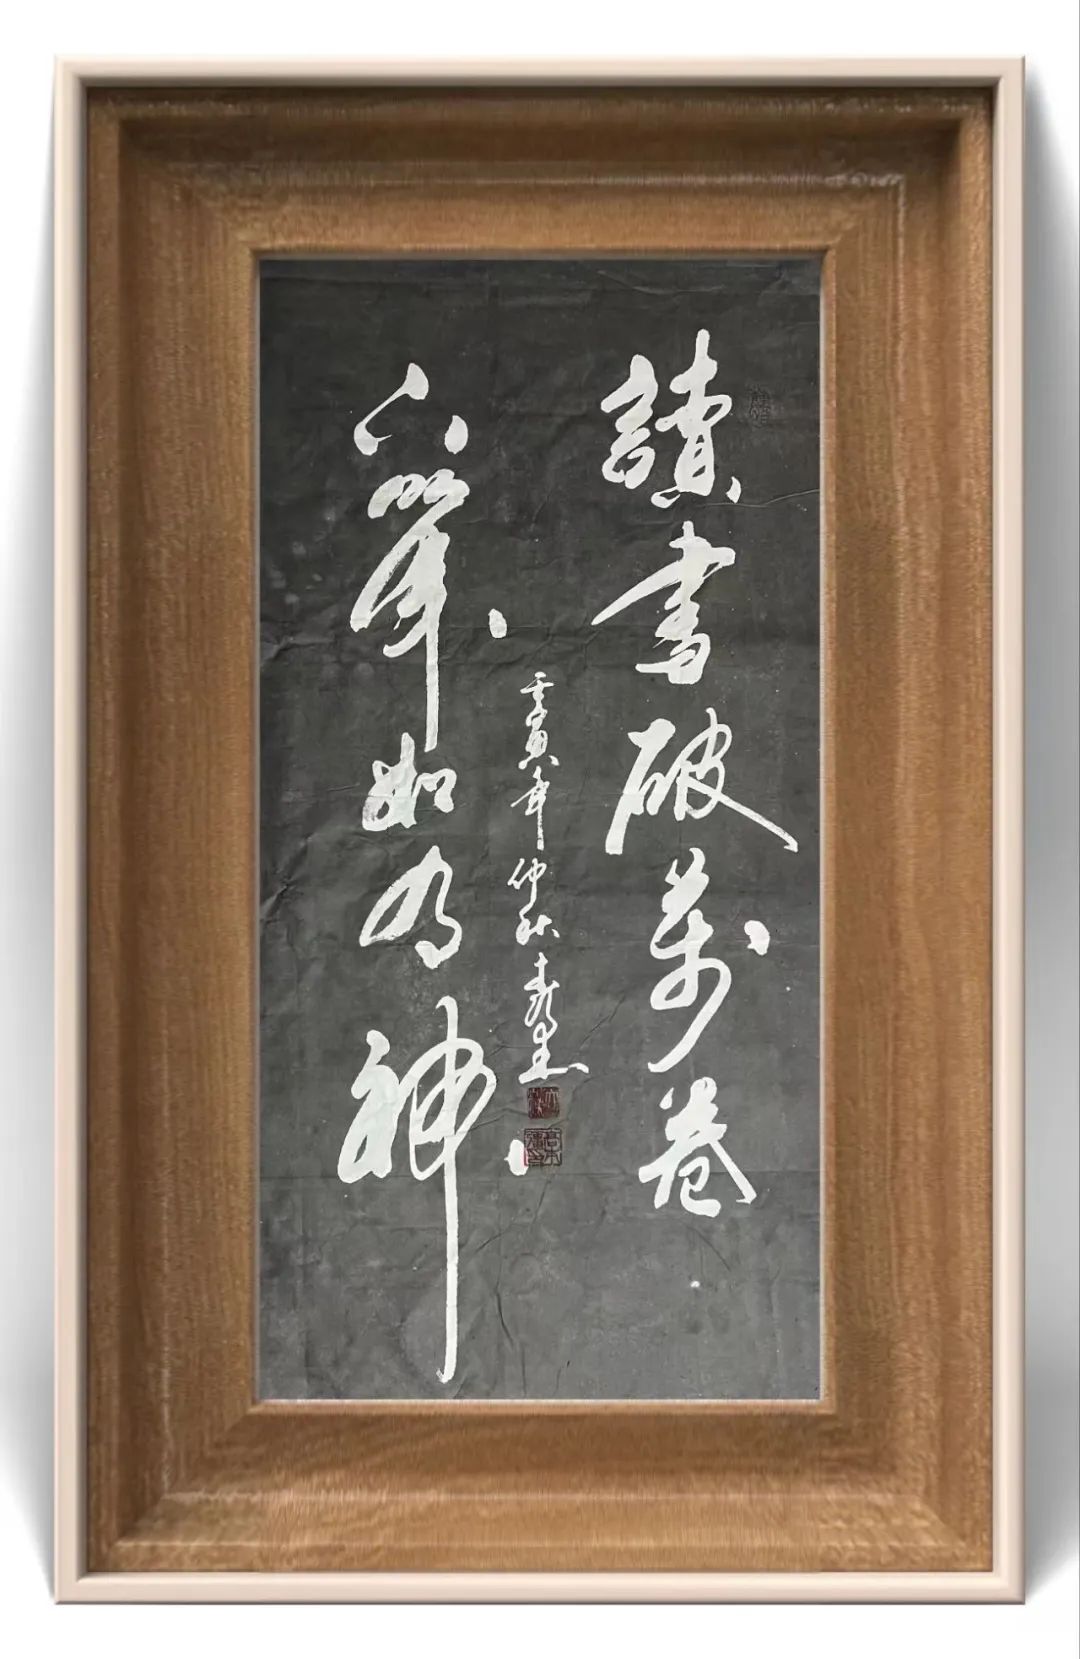 讀書破萬卷
下筆如有神
寅年仲秋